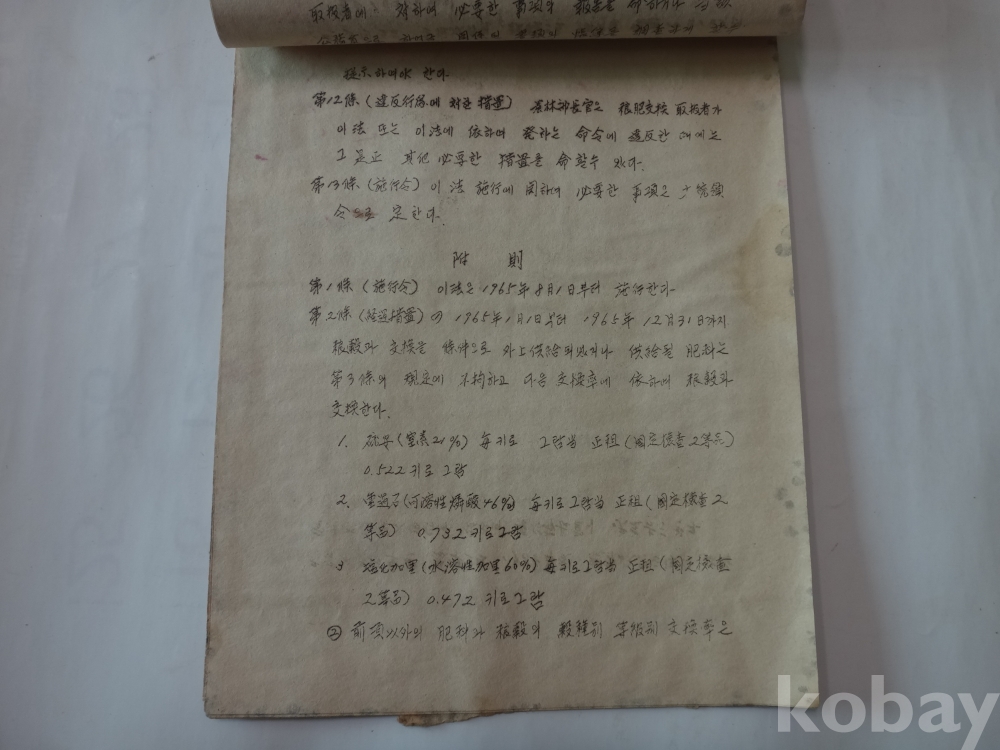 取扱者에 対하여 必要한 事項의 報告를 命하거나
提示하여야 한다
第12條 (違反行爲에 対한 措置) 農林部長官은 糧肥交換 取扱者가
이 法 또는 이 法에 依하여 発하는 命令에 違反한 때에는
그 是正 其他 必要한 措置를 命할수 있다.
第13條 (施行令) 이 法 施行에 関하여 必要한 事項은 大統領
令으로 定한다.
附 則
第1條 (施行令) 이法은 1965年 8月1日부터 施行한다
第2條 (経過措置) ① 1965年1月1日부터 1965年 12月31日까지
糧穀과 交換을 條件으로 外上供給되었거나 供給될 肥料는
第3條의 規定에 不拘하고 다음 交換率에 依하여 糧穀과
交換한다.
1. 硫安 (窒素21%) 每키로 그람当 正租 (固定検査2等品)
0.522 키로 그람
2. 重過石 (可溶性燐酸 46%) 每키로 그람当 正租 (固定検査 2
等品) 0.732 키로 그람
3 塩化加里 (水溶性加里 60%) 每키로 그람当 正租 (固定検査
2等品) 0.472 키로 그람
② 前項以外의 肥料와 糧穀의 穀種別 等級別 交換率은
kobay